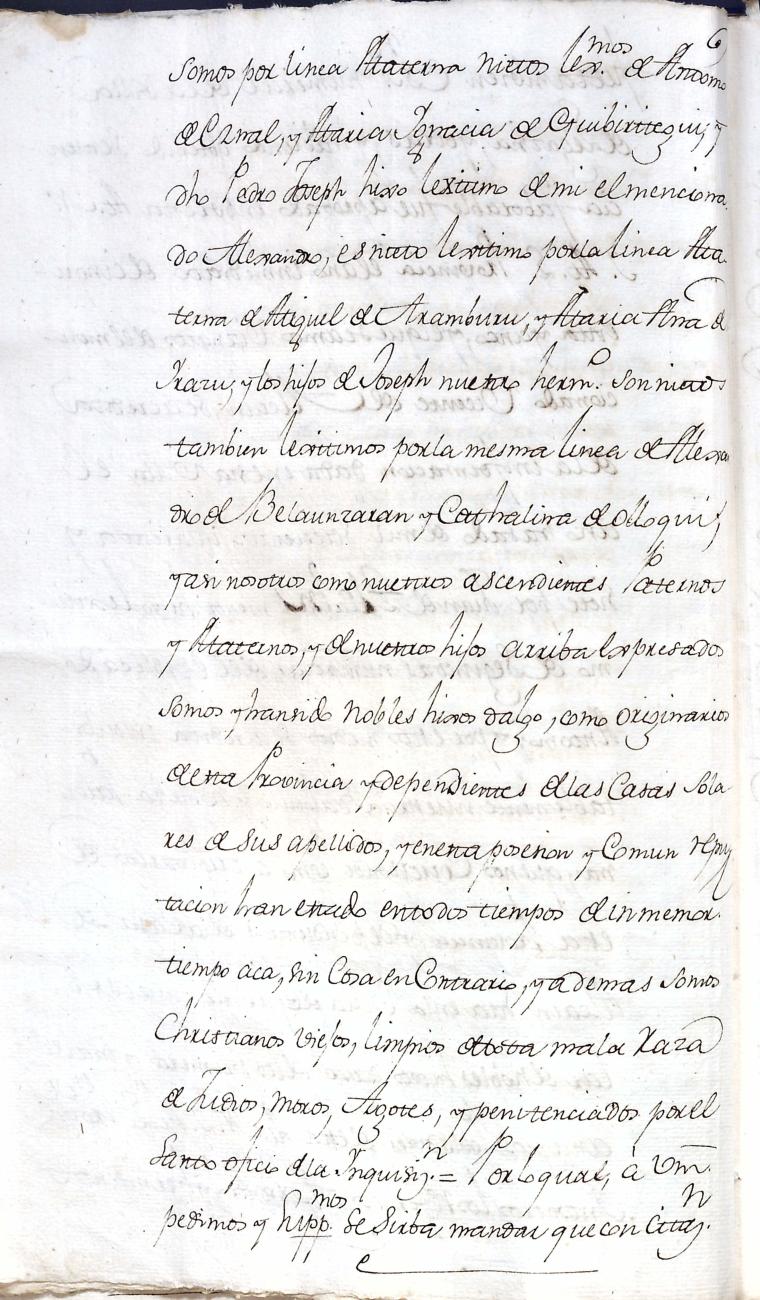 somos por linea Materna nietos lex.mos de Antonio
de Esnal, y Maria Ygnacia de Eguibiritegui, y
dho Pedro Joseph hixo lexitimo de mi el menciona-
do Alexandro, es nieto lexitimo por la linea Ma-
terna de Miguel de Aramburu, y Maria Ana de
Yrazu; y los hijos de Joseph nuestro herm.o son nietos
tambien lexitimos por la mesma linea de Alexan
dro de Belaunzaran y Cathalina de Olloqui;
y asi nosotros como nuestros ascendientes Paternos
y Maternos, y de nuestros hijos arriba expresados
somos y han sido Nobles hixos dalgo, como originarios
de esta Provincia y dependientes de las Casas Sola
res de sus apellidos, y en esta posesion y Comun repu
tacion han estado en todos tiempos de inmemor.
tiempo aca, sin Cosa en Contrario, y ademas somos
Christianos viejos, limpios de toda mala Raza
de Judios, Moros, Agotes, y penitenciados por el
Santo oficio de la Ynquisiz.n = Por lo qual, à Vm.
pedimos y supp.mos se sirba mandar que con Citaz.n